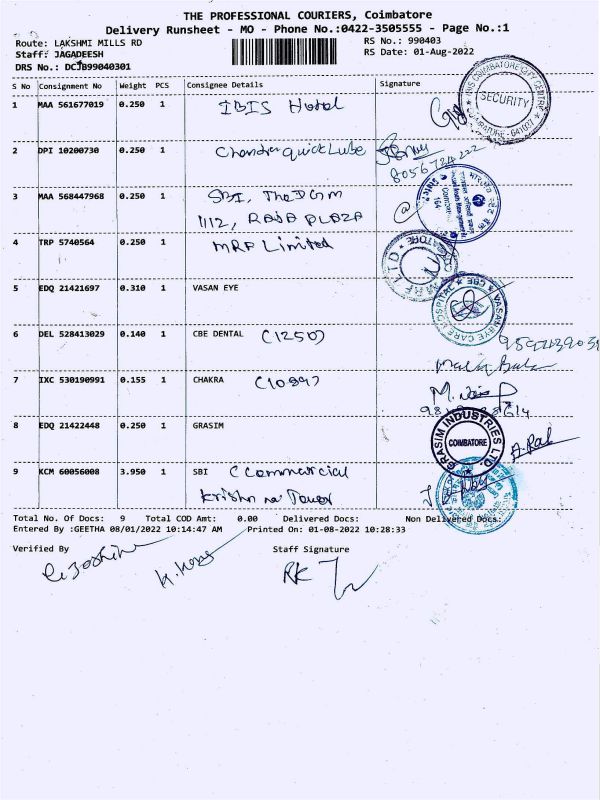 THE PROFESSIONAL COURIERS, Coimbatore
Delivery Runsheet - MO - Phone No.:0422-3505555 - Page No.:1
Route: LAKSHMI MILLS RD
RS No.: 990403
Staff: JAGADEESH
RS Date: 01-Aug-2022
DRS No.: DCJB99040301
S No Consignment No Weight PCS Consignee Details Signature
1 MAA 561677019 0.250 1 IBIS Hotel
SECURITY
2 DPI 10200730 0.250 1 Chandra quick Lube
8056724222
3 MAA 568447968 0.250 1 SBI, The DGM
1112, RAJA PLAZA
4 TRP 5740564 0.250 1 MRF Limited
5 EDQ 21421697 0.310 1 VASAN EYE
VASAN EYE CARE HOSPITAL * CBE *
6 DEL 528413029 0.140 1 CBE DENTAL (1250)
7 IXC 530190991 0.155 1 CHAKRA (1089)
8 EDQ 21422448 0.250 1 GRASIM
GRASIM INDUSTRIES LTD. COIMBATORE
9 KCM 60056008 3.950 1 SBI (Commercial
Krishna Tower
Total No. Of Docs: 9 Total COD Amt: 0.00 Delivered Docs: Non Delivered Docs:
Entered By :GEETHA 08/01/2022 10:14:47 AM Printed On: 01-08-2022 10:28:33
Verified By Staff Signature